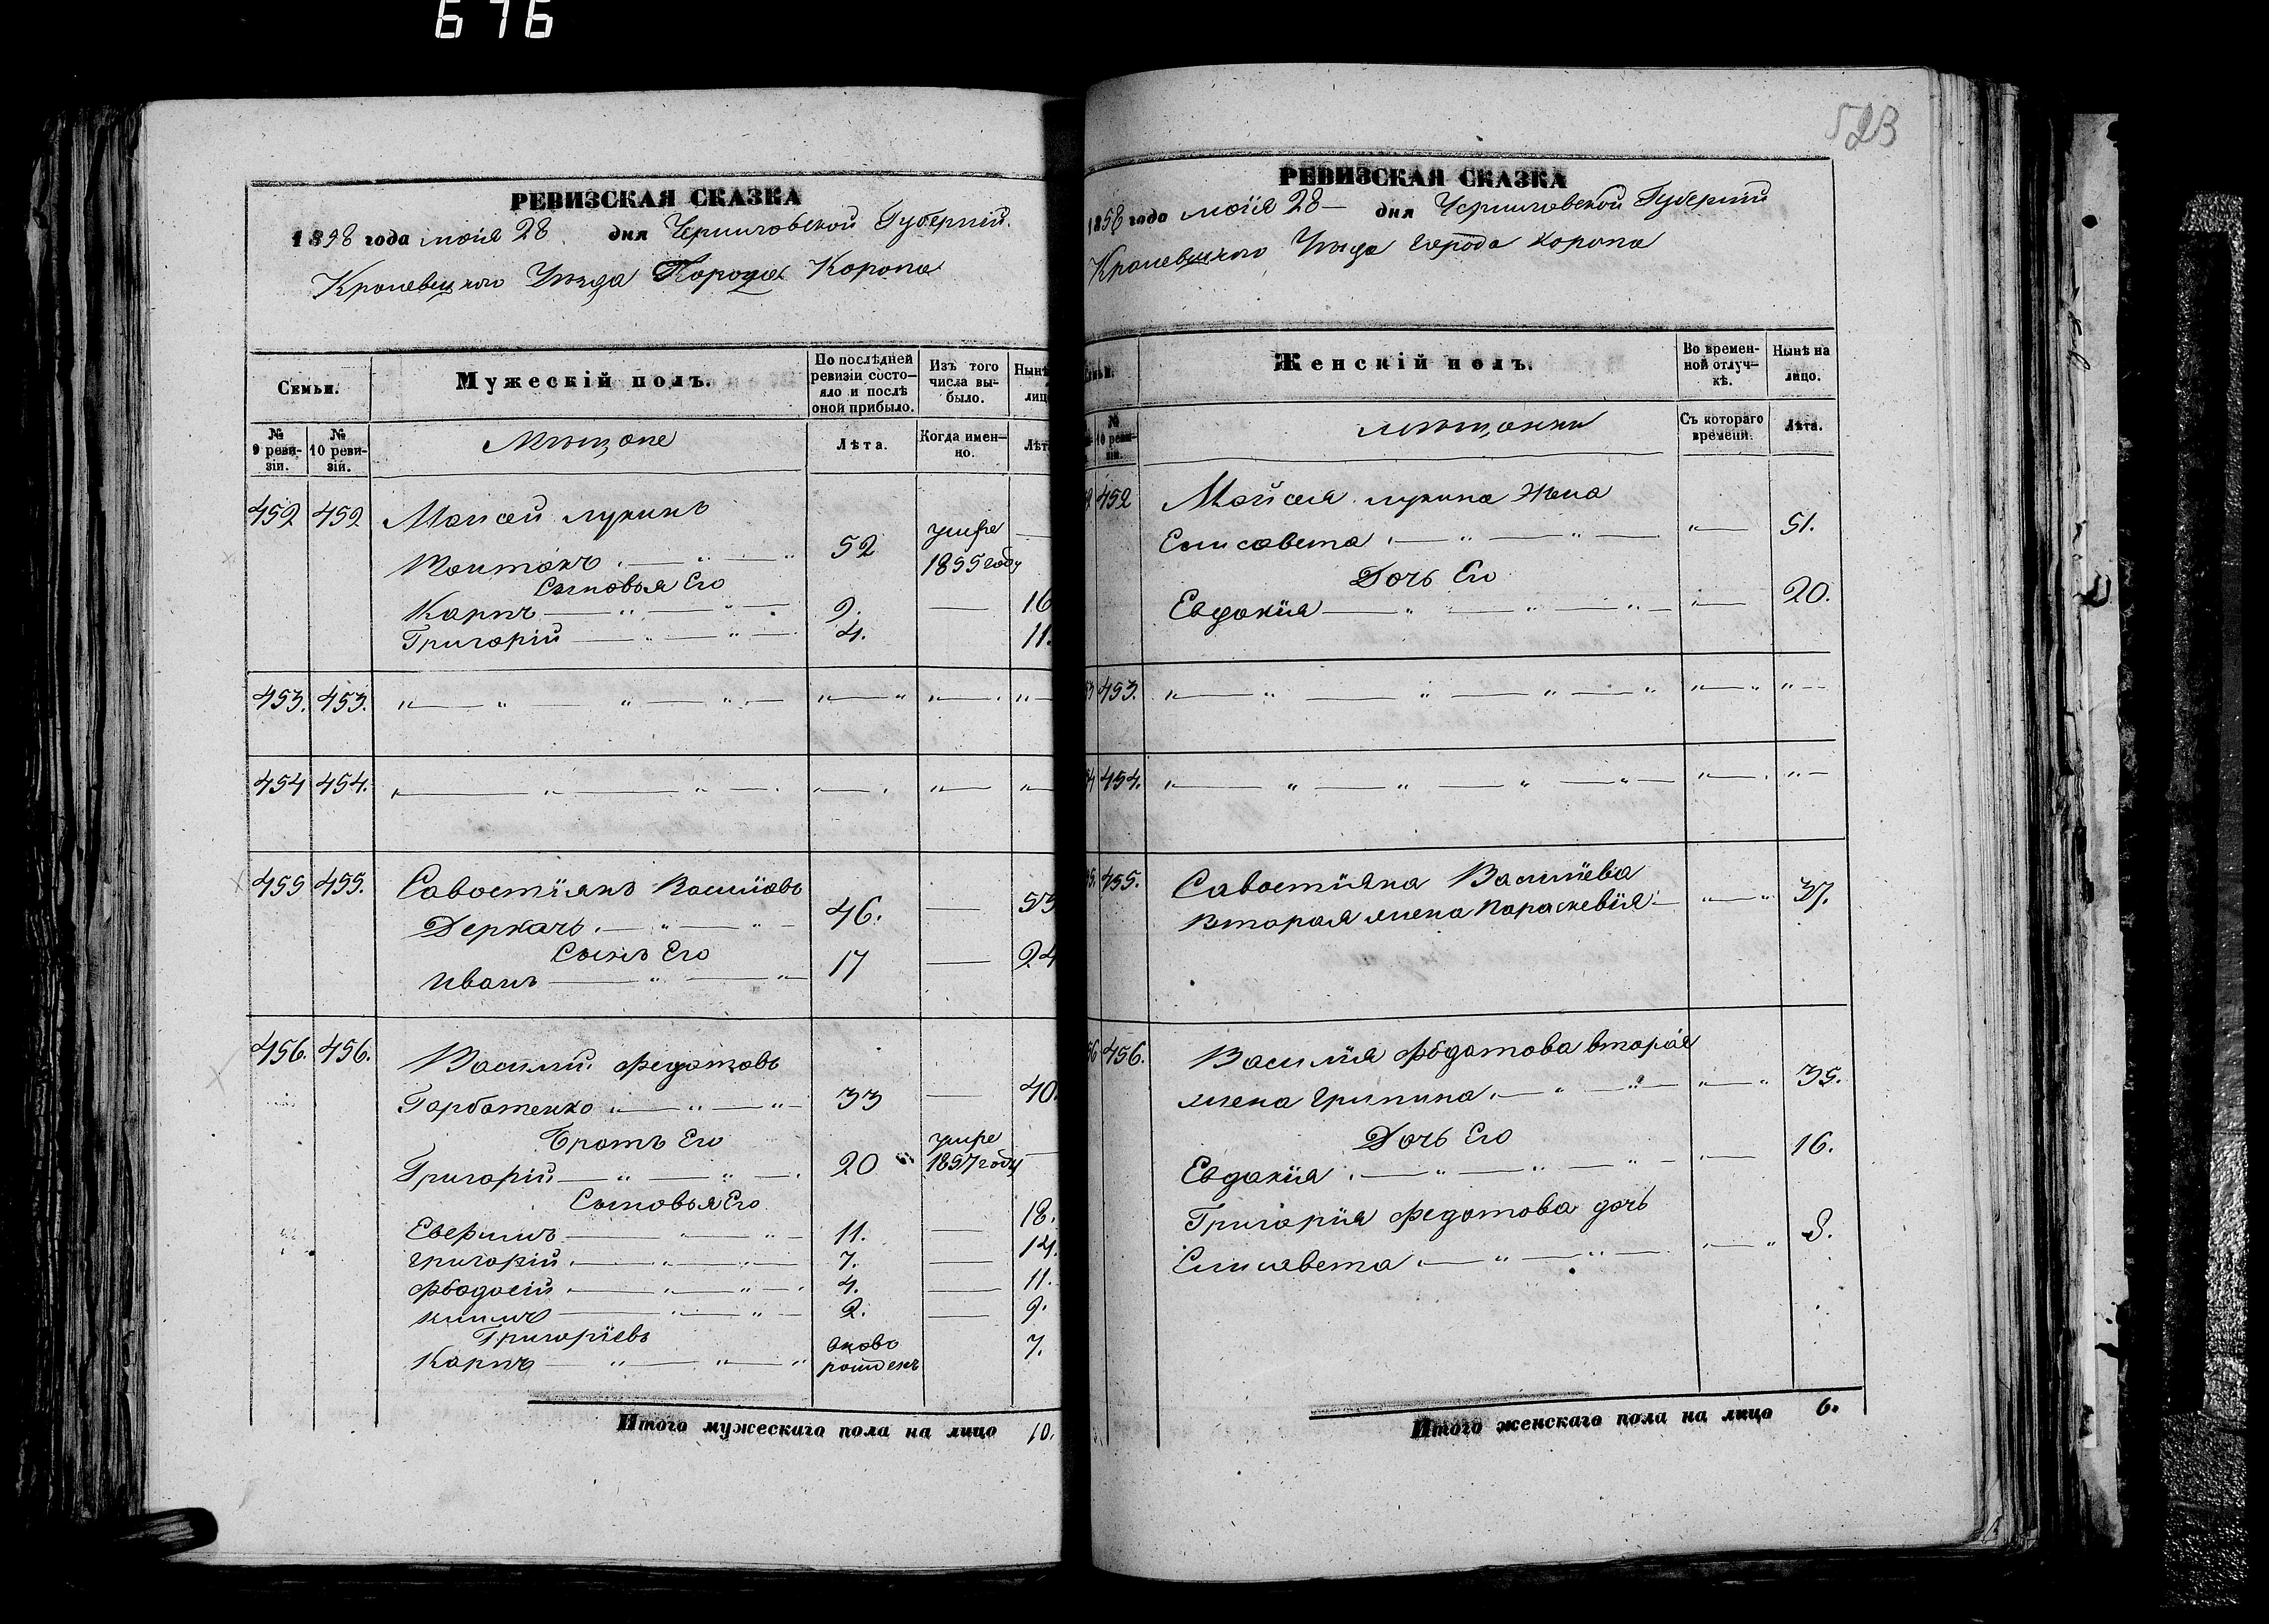 676
РЕВИЗСКАЯ СКАЗКА
1858 года мая 28 дня Черниговской Губернии
Кролевецкого Уѣзда Города Коропа
Семьи.
Мужескій полъ.
По послѣдней ревизіи состо-яло и послѣ оной прибыло.
Изъ того числа вы-было.
Нынѣ
лиц
№ 9 реви-зіи.
№ 10 реви-зіи.
Мѣщане
Лѣта.
Когда имен-но.
Лѣт
452 452 Моисей Лукинъ
52 умре 1855 году —
Сыновья Его
Карпъ 9. — 16
Григорій 4. 11.
453. 453.
454 454.
455 455. Савостіянъ Василіевъ
Деркачъ 46. — 53
Сынъ Его
Иванъ 17 — 24
456. 456. Василий Федотовъ
Горбатенко 33 — 40.
Братъ Его
Григорій 20 умре 1857 году —
Сыновья Его
Евфимъ 11. — 18.
Григорій 7. — 14.
Феодосій 4. — 11.
2. — 9.
Григоріевъ
Карпъ вново рожденъ 7.
Итого мужескаго пола на лицо 10.
523
РЕВИЗСКАЯ СКАЗКА
1858 года мая 28 дня Черниговской Губернии
Кролевецкого Уѣзда города Коропа
Женскій полъ.
Во времен-ной отлуч-кѣ.
Нынѣ на лицо.
№ 10 реви-зіи.
мѣщанки
Съ котораго времени.
Лѣта.
452 Мойсея Лукина жена
Елисавета 51.
Дочь Его
Евдокія 20.
453.
454.
455. Савостіяна Василіева
вторая жена Параскевія 37.
456. Василія Федотова вторая
жена Грипина 35.
Дочь Его
Евдокія 16.
Григорія Федотова дочь
Елисавета 8.
Итого женскаго пола на лицо 6.